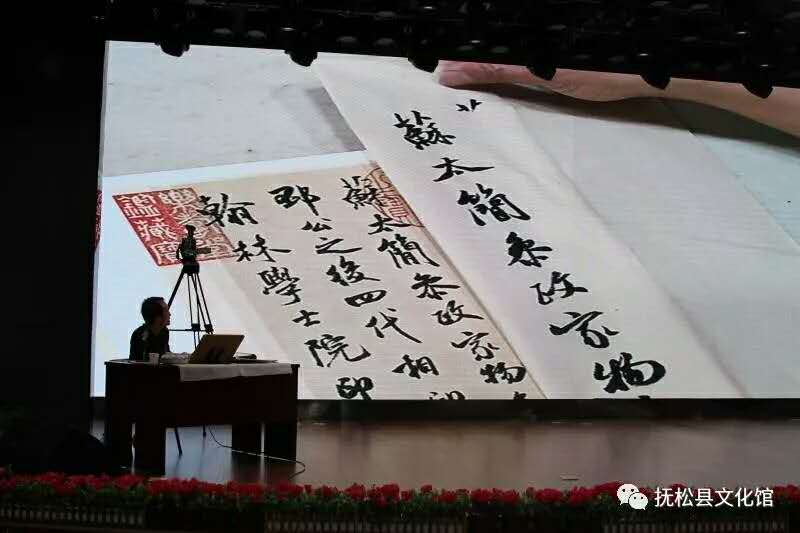 蘇太簡參政家物
蘇太簡參政家物
邳公之後四代相印
翰林學士院印
抚松县文化馆